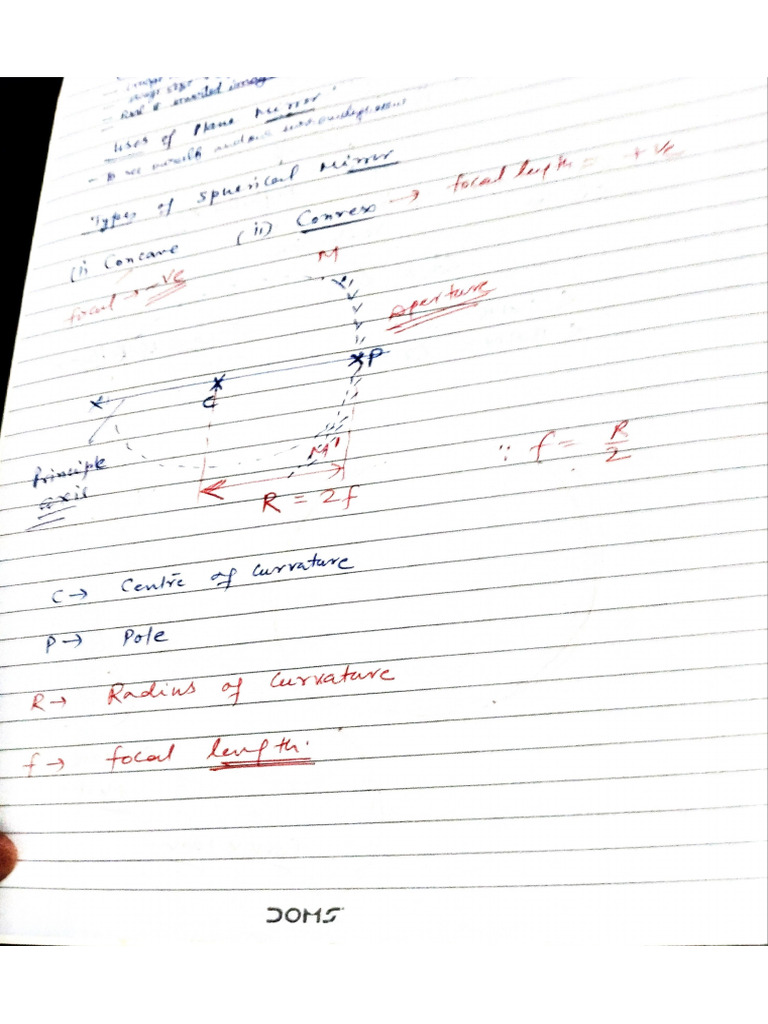 Uses of Plane Mirror
Types of Spherical Mirror
(i) Concave (ii) Convex → focal length = +Ve
focal → -Ve
M
Aperture
P
C
Principle
axis
M'
R = 2f
∵ f = R/2
C → Centre of Curvature
P → Pole
R → Radius of Curvature
f → focal length.
DOMS